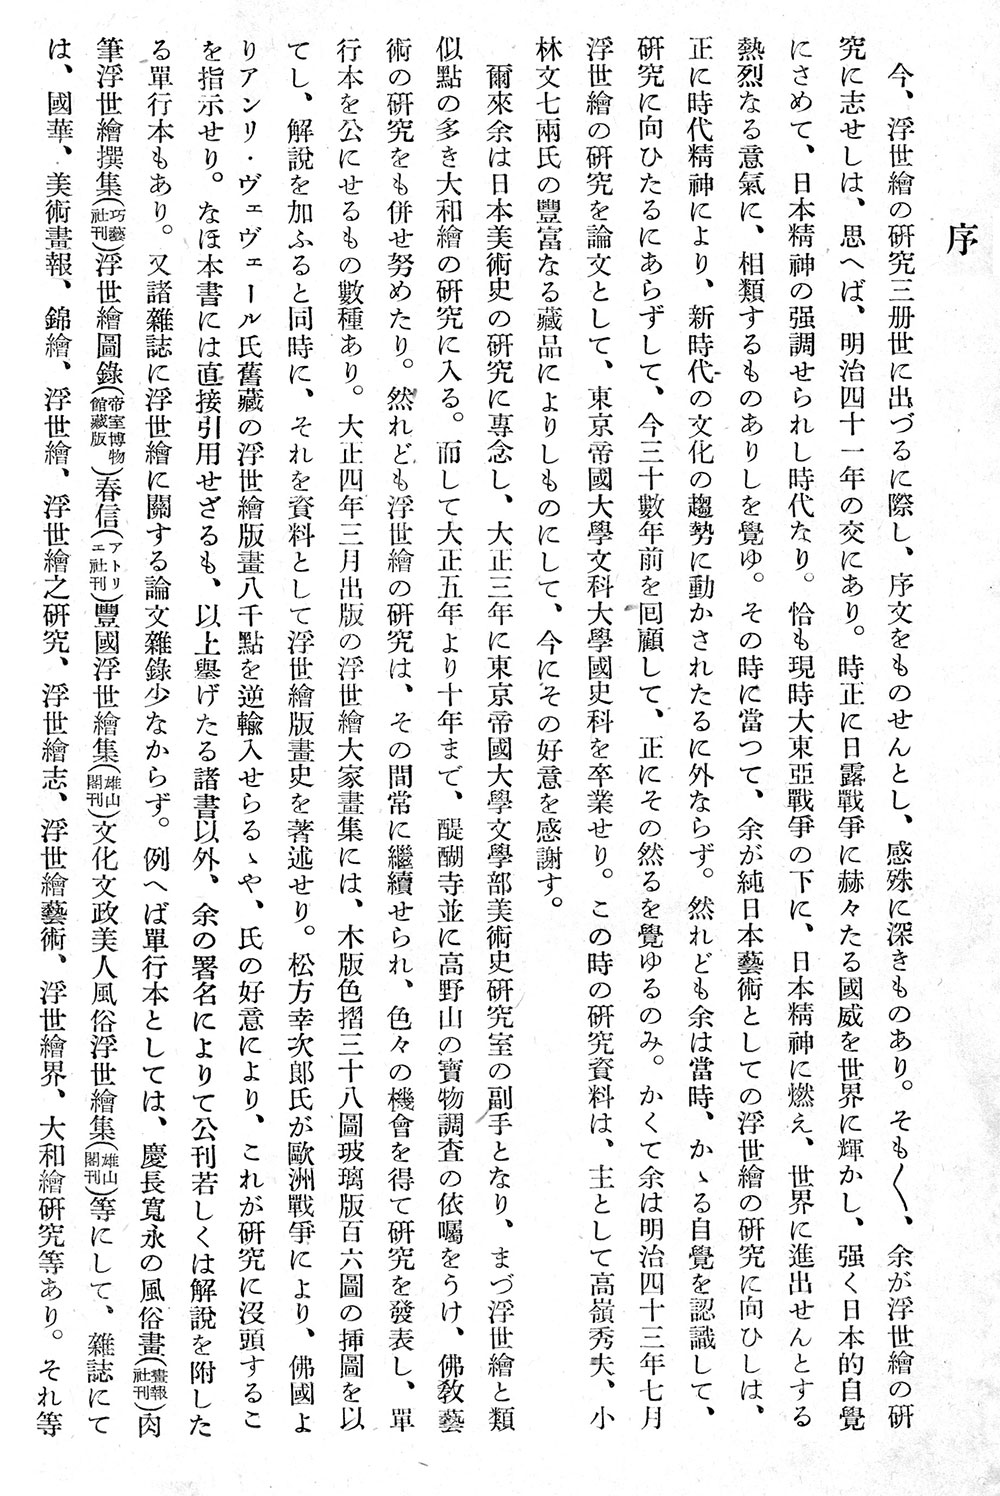 序
今、浮世繪の硏究三册世に出づるに際し、序文をものせんとし、感殊に深きものあり。そも〱、余が浮世繪の硏
究に志せしは、思へば、明治四十一年の交にあり。時正に日露戰爭に赫々たる國威を世界に輝かし、强く日本的自覺
にさめて、日本精神の强調せられし時代なり。恰も現時大東亞戰爭の下に、日本精神に燃え、世界に進出せんとする
熱烈なる意氣に、相類するものありしを覺ゆ。その時に當つて、余が純日本藝術としての浮世繪の硏究に向ひしは、
正に時代精神により、新時代の文化の趨勢に動かされたるに外ならず。然れども余は當時、かゝる自覺を認識して、
硏究に向ひたるにあらずして、今三十數年前を囘顧して、正にその然るを覺ゆるのみ。かくて余は明治四十三年七月
浮世繪の硏究を論文として、東京帝國大學文科大學國史科を卒業せり。この時の硏究資料は、主として高嶺秀夫、小
林文七兩氏の豐富なる藏品によりしものにして、今にその好意を感謝す。
爾來余は日本美術史の硏究に專念し、大正三年に東京帝國大學文學部美術史硏究室の副手となり、まづ浮世繪と類
似點の多き大和繪の硏究に入る。而して大正五年より十年まで、醍醐寺並に高野山の寶物調査の依囑をうけ、佛敎藝
術の硏究をも併せ努めたり。然れども浮世繪の硏究は、その間常に繼續せられ、色々の機會を得て硏究を發表し、單
行本を公にせるもの數種あり。大正四年三月出版の浮世繪大家畫集には、木版色摺三十八圖玻璃版百六圖の揷圖を以
てし、解說を加ふると同時に、それを資料として浮世繪版畫史を著述せり。松方幸次郞氏が歐洲戰爭により、佛國よ
りアンリ・ヴェヴェール氏舊藏の浮世繪版畫八千點を逆輸入せらるゝや、氏の好意により、これが硏究に沒頭するこ
を指示せり。なほ本書には直接引用せざるも、以上擧げたる諸書以外、余の署名によりて公刊若しくは解說を附した
る單行本もあり。又諸雜誌に浮世繪に關する論文雜錄少なからず。例へば單行本としては、慶長寬永の風俗畫(畫報社刊)肉
筆浮世繪撰集(巧藝社刊)浮世繪圖錄(帝室博物館藏版)春信(アトリエ社刊)豐國浮世繪集(雄山閣刊)文化文政美人風俗浮世繪集(雄山閣刊)等にして、雜誌にて
は、國華、美術畫報、錦繪、浮世繪、浮世繪之硏究、浮世繪志、浮世繪藝術、浮世繪界、大和繪硏究等あり。それ等